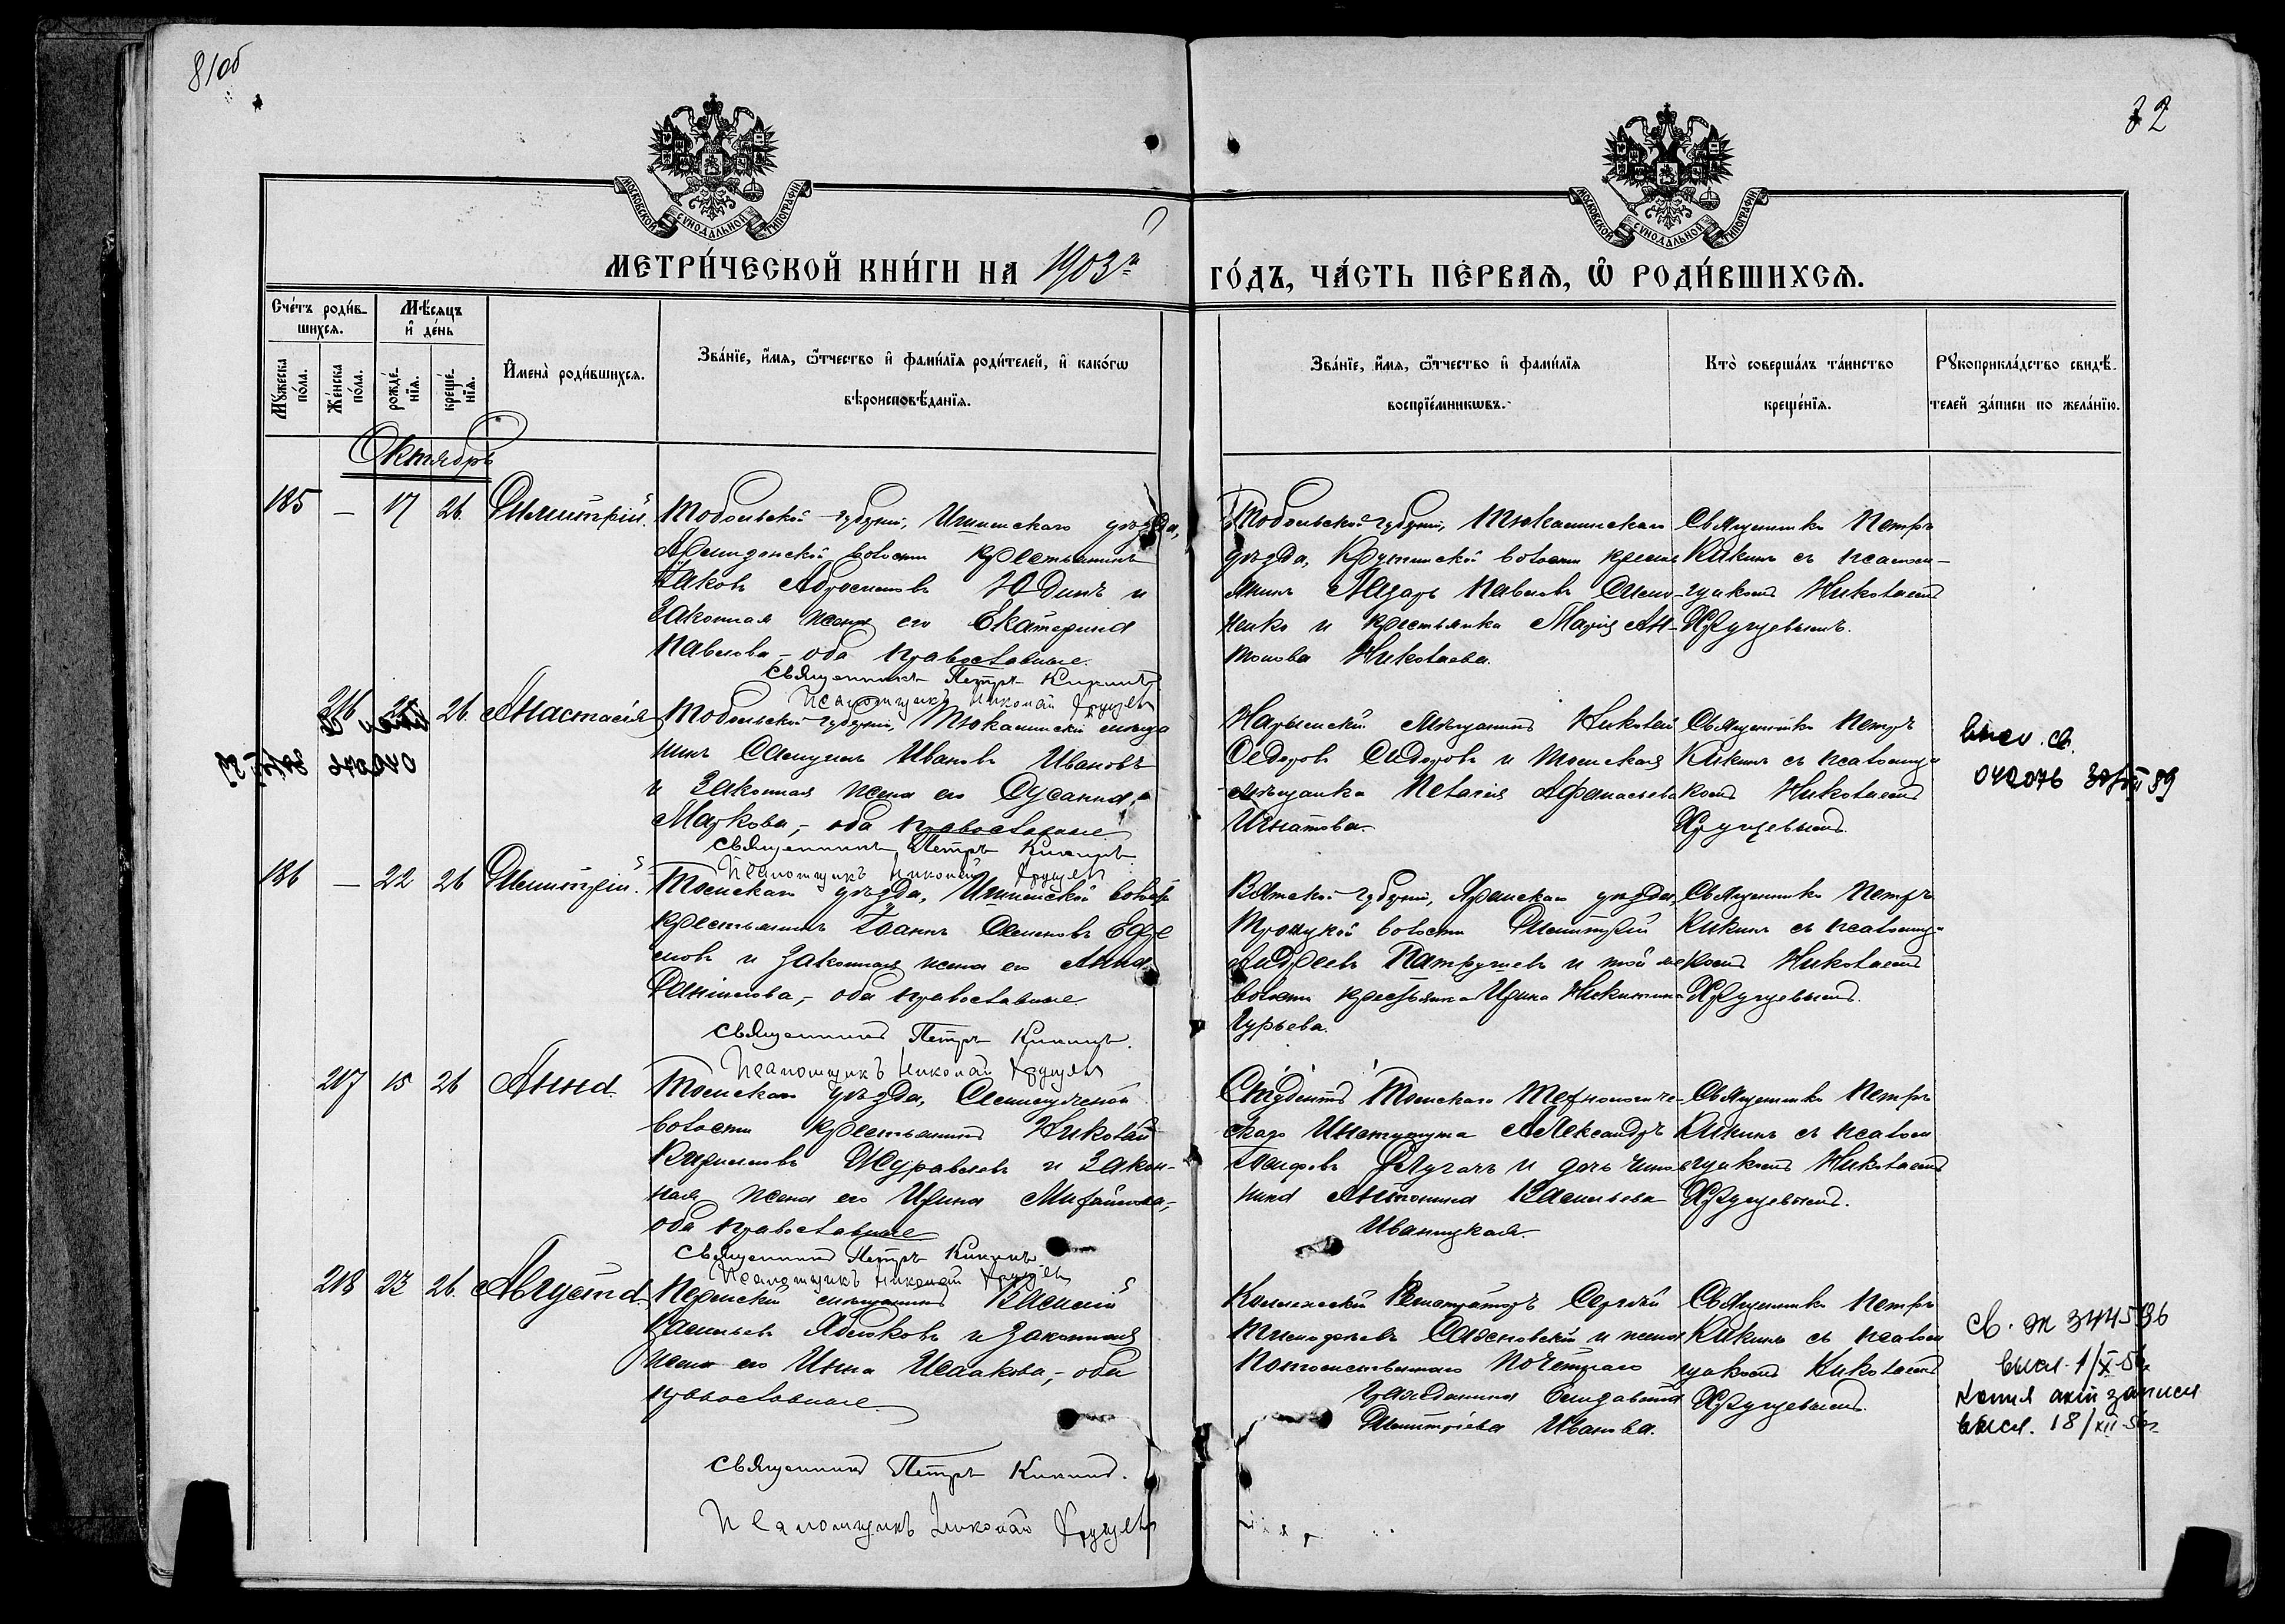 81об
82
МОСКОВСКОЙ СѴНОДАЛЬНОЙ ТИПОГРАФІИ
МОСКОВСКОЙ СѴНОДАЛЬНОЙ ТИПОГРАФІИ
МЕТРИ́ЧЕСКОЙ КНИ́ГИ НА 1903й ГО́ДЪ, ЧА́СТЬ ПЕ́РВАЯ, Ѡ҆ РОДИ́ВШИХСѦ.
Сче́тъ роди́в-
шихсѧ.
Мѣ́сѧцъ
и҆ де́нь
Мꙋ́жеска
по́ла.
Же́нска
по́ла.
рожде́-
нїѧ.
креще́-
нїѧ.
И҆мена̀ роди́вшихсѧ.
Зва́нїе, и҆́мѧ, ѻ҆́тчество и҆ фами́лїѧ роди́телей, и҆ како́гѡ
вѣроисповѣ́данїѧ.
Зва́нїе, и҆́мѧ, ѻ҆́тчество и҆ фами́лїѧ
воспрїе́мникѡвъ.
Кто̀ соверша́лъ та́инство
креще́нїѧ.
Рꙋкоприкла́дство свидѣ́-
телей за́писи по жела́нїю.
Октябрь
185 — 17 26. Димитрій.
Тобольской губерніи, Ишимскаго уѣзда,
Армизонской волости крестьянинъ
Іаковъ Абросимовъ Юдинъ и
законная жена его Екатерина
Павлова – оба православные.
Священникъ Петръ Кикинъ
Псаломщикъ Николай
Тобольской губерніи, Тюкалинскаго
уѣзда, Крутинской волости крестья
нинъ Лазарь Павловъ Симо-
ненко и крестьянка Марія Ан-
тонова Николаева.
Священникъ Петръ
Кикинъ съ псалом-
щикомъ Николаемъ
216 26. Анастасія
Тобольской губерніи, Тюкалинскій мѣща
нинъ Самуилъ Ивановъ Ивановъ
и законная жена его Сусанна
Маркова, – оба православные
Священникъ Петръ Кикинъ
Псаломщикъ Николай
Нарымскій мѣщанинъ Николай
Ѳедоровъ Сидоровъ и томская
мѣщанка Пелагія Афанасьева
Игнатова.
Священникъ Петръ
Кикинъ съ псаломщи-
комъ Николаемъ
св.
040076
186 — 22 26 Димитрій.
Томскаго уѣзда, Ишимской волости
крестьянинъ Іоаннъ Семеновъ Ефре
мовъ и законная жена его Анна
Данилова, – оба православные
Священникъ Петръ Кикинъ.
Псаломщикъ Николай
Вятской губерніи, Яранскаго уѣзда,
Троицкой волости Димитрій
Андреевъ Патрушевъ и той же
волости крестьянка Ирина Никитина
Гурьева.
Священникъ Петръ
Кикинъ съ псаломщи-
комъ Николаемъ
217 15 26 Анна.
Томскаго уѣзда, Семилужной
волости крестьянинъ Николай
Кирилловъ Журавлевъ и закон-
ная жена его Ирина Михайлова,–
оба православные
Священникъ Петръ Кикинъ
Псаломщикъ Николай
Студентъ Томскаго Технологиче-
скаго Института Александръ
Іосифовъ и дочь чинов
ника Антонина Васильева
Иваницкая.
Священникъ Петръ
Кикинъ съ псалом
щикомъ Николаемъ
218 23 26. Августа.
Пермскій мѣщанинъ Василій
Васильевъ Яблоковъ и законная
жена его Инна Исаакова, – оба
православные.
Священникъ Петръ Кикинъ.
Псаломщикъ Николай
Коллежскій Регистраторъ Сергѣй
и жена
Потомственнаго Почетнаго
Гражданина Елизавета
Димитріева Иванова.
Священникъ Петръ
Кикинъ съ псалом
щикомъ Николаемъ
св.
высл. 1/X
копия акт записи
высл. 18/XII